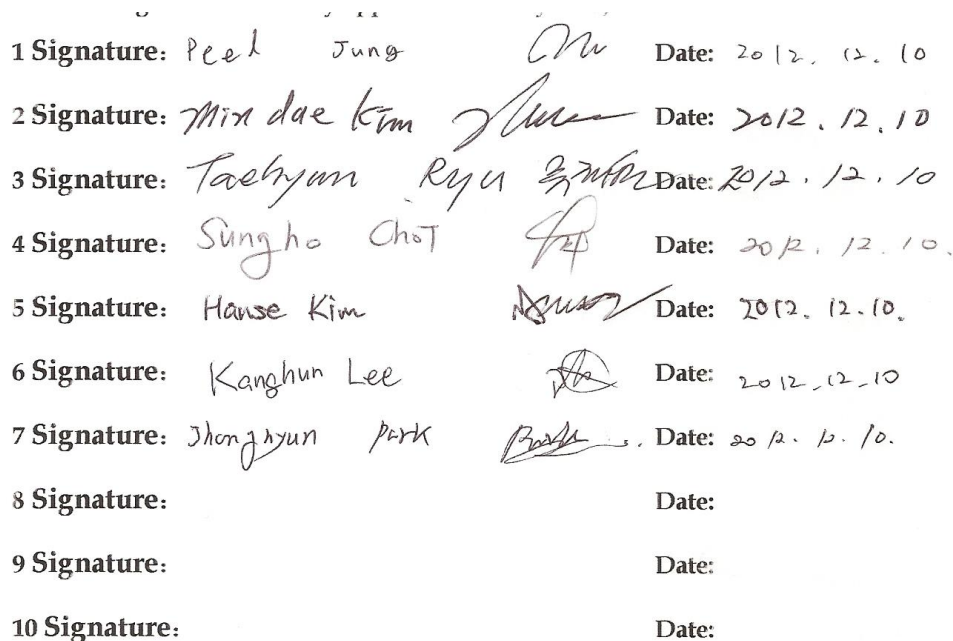 1 Signature: Peel Jung Date: 2012. 12. 10
2 Signature: Min dae Kim Date: 2012. 12. 10
3 Signature: Taehyun Ryu Date: 2012. 12. 10
4 Signature: Sungho Choi Date: 2012. 12. 10.
5 Signature: Hanse Kim Date: 2012. 12. 10.
6 Signature: Kanghun Lee Date: 2012. 12. 10
7 Signature: Jhonghyun Park Date: 2012. 12. 10.
8 Signature: Date:
9 Signature: Date:
10 Signature: Date: